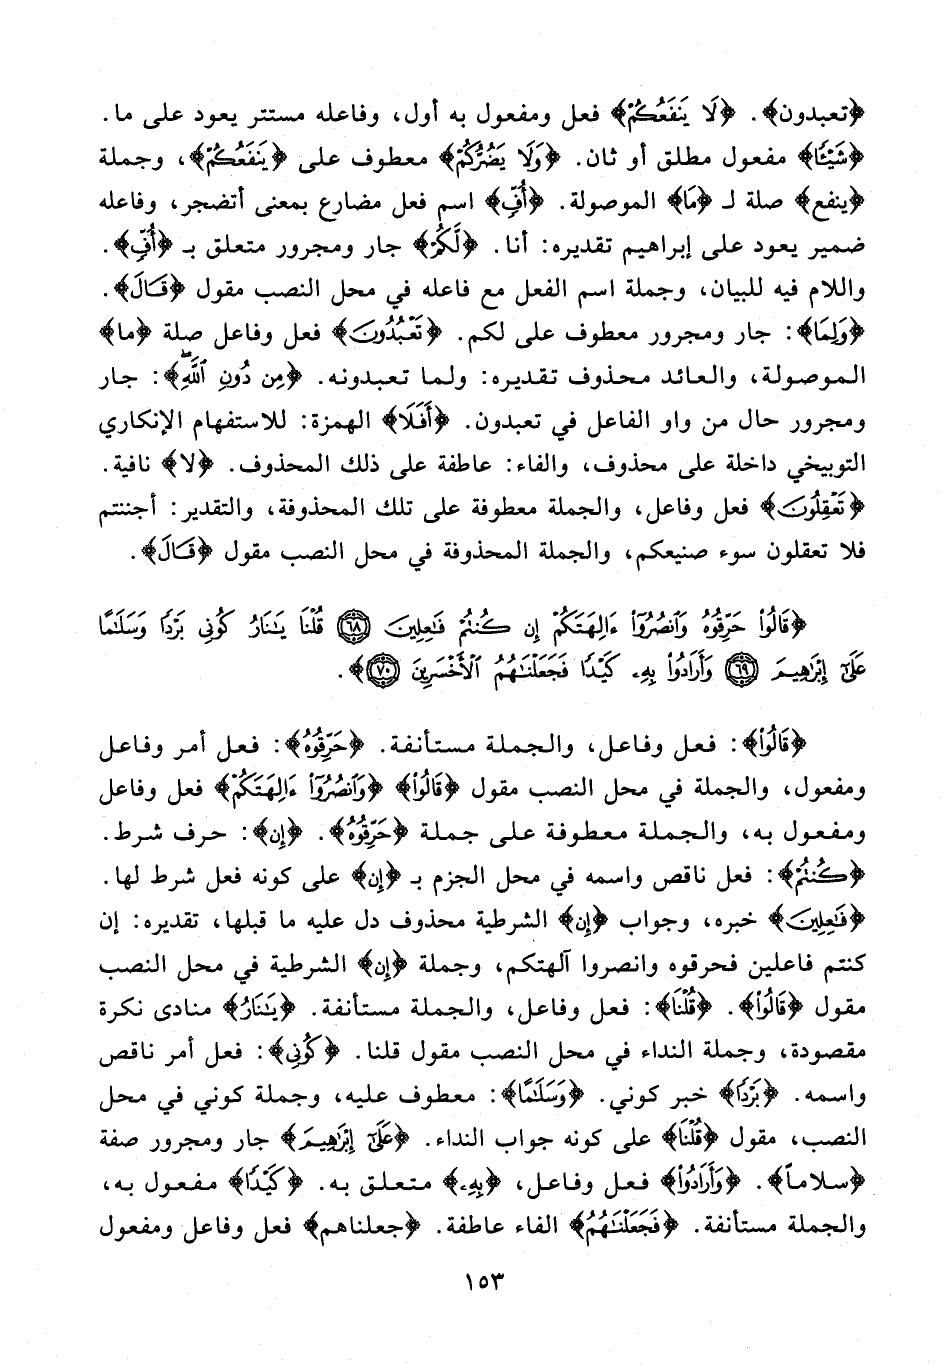 ﴿تعبدون﴾. ﴿لَا يَنفَعُكُمْ﴾ فعل ومفعول به أول، وفاعله مستتر يعود على ما.
﴿شَيْـًٔا﴾ مفعول مطلق أو ثان. ﴿وَلَا يَضُرُّكُمْ﴾ معطوف على ﴿يَنفَعُكُمْ﴾، وجملة
﴿ينفع﴾ صلة لـ ﴿مَا﴾ الموصولة. ﴿أُفٍّ﴾ اسم فعل مضارع بمعنى أتضجر، وفاعله
ضمير يعود على إبراهيم تقديره: أنا. ﴿لَّكُمْ﴾ جار ومجرور متعلق بـ ﴿أُفٍّ﴾.
واللام فيه للبيان، وجملة اسم الفعل مع فاعله في محل النصب مقول ﴿قَالَ﴾.
﴿وَلِمَا﴾: جار ومجرور معطوف على لكم. ﴿تَعْبُدُونَ﴾ فعل وفاعل صلة ﴿ما﴾
الموصولة، والعائد محذوف تقديره: ولما تعبدونه. ﴿مِن دُونِ ٱللَّهِۖ﴾: جار
ومجرور حال من واو الفاعل في تعبدون. ﴿أَفَلَا﴾ الهمزة: للاستفهام الإنكاري
التوبيخي داخلة على محذوف، والفاء: عاطفة على ذلك المحذوف. ﴿لا﴾ نافية.
﴿تَعْقِلُونَ﴾ فعل وفاعل، والجملة معطوفة على تلك المحذوفة، والتقدير: أجننتم
فلا تعقلون سوء صنيعكم، والجملة المحذوفة في محل النصب مقول ﴿قَالَ﴾.
﴿قَالُوا۟ حَرِّقُوهُ وَٱنصُرُوٓا۟ ءَالِهَتَكُمْ إِن كُنتُمْ فَٰعِلِينَ ٦٨ قُلْنَا يَٰنَارُ كُونِى بَرْدًا وَسَلَٰمًا
عَلَىٰٓ إِبْرَٰهِيمَ ٦٩ وَأَرَادُوا۟ بِهِۦ كَيْدًا فَجَعَلْنَٰهُمُ ٱلْأَخْسَرِينَ ٧٠﴾.
﴿قَالُوا۟﴾: فعل وفاعل، والجملة مستأنفة. ﴿حَرِّقُوهُ﴾: فعل أمر وفاعل
ومفعول، والجملة في محل النصب مقول ﴿قَالُوا۟﴾ ﴿وَٱنصُرُوٓا۟ ءَالِهَتَكُمْ﴾ فعل وفاعل
ومفعول به، والجملة معطوفة على جملة ﴿حَرِّقُوهُ﴾. ﴿إِن﴾: حرف شرط.
﴿كُنتُمْ﴾: فعل ناقص واسمه في محل الجزم بـ ﴿إِن﴾ على كونه فعل شرط لها.
﴿فَٰعِلِينَ﴾ خبره، وجواب ﴿إِن﴾ الشرطية محذوف دل عليه ما قبلها، تقديره: إن
كنتم فاعلين فحرقوه وانصروا آلهتكم، وجملة ﴿إِن﴾ الشرطية في محل النصب
مقول ﴿قَالُوا۟﴾. ﴿قُلْنَا﴾: فعل وفاعل، والجملة مستأنفة. ﴿يَٰنَارُ﴾ منادى نكرة
مقصودة، وجملة النداء في محل النصب مقول قلنا. ﴿كُونِى﴾: فعل أمر ناقص
واسمه. ﴿بَرْدًا﴾ خبر كوني. ﴿وَسَلَٰمًا﴾: معطوف عليه، وجملة كوني في محل
النصب، مقول ﴿قُلْنَا﴾ على كونه جواب النداء. ﴿عَلَىٰٓ إِبْرَٰهِيمَ﴾ جار ومجرور صفة
﴿سلاماً﴾. ﴿وَأَرَادُوا۟﴾ فعل وفاعل، ﴿بِهِۦ﴾ متعلق به. ﴿كَيْدًا﴾ مفعول به،
والجملة مستأنفة. ﴿فَجَعَلْنَٰهُمُ﴾ الفاء عاطفة. ﴿جعلناهم﴾ فعل وفاعل ومفعول
١٥٣